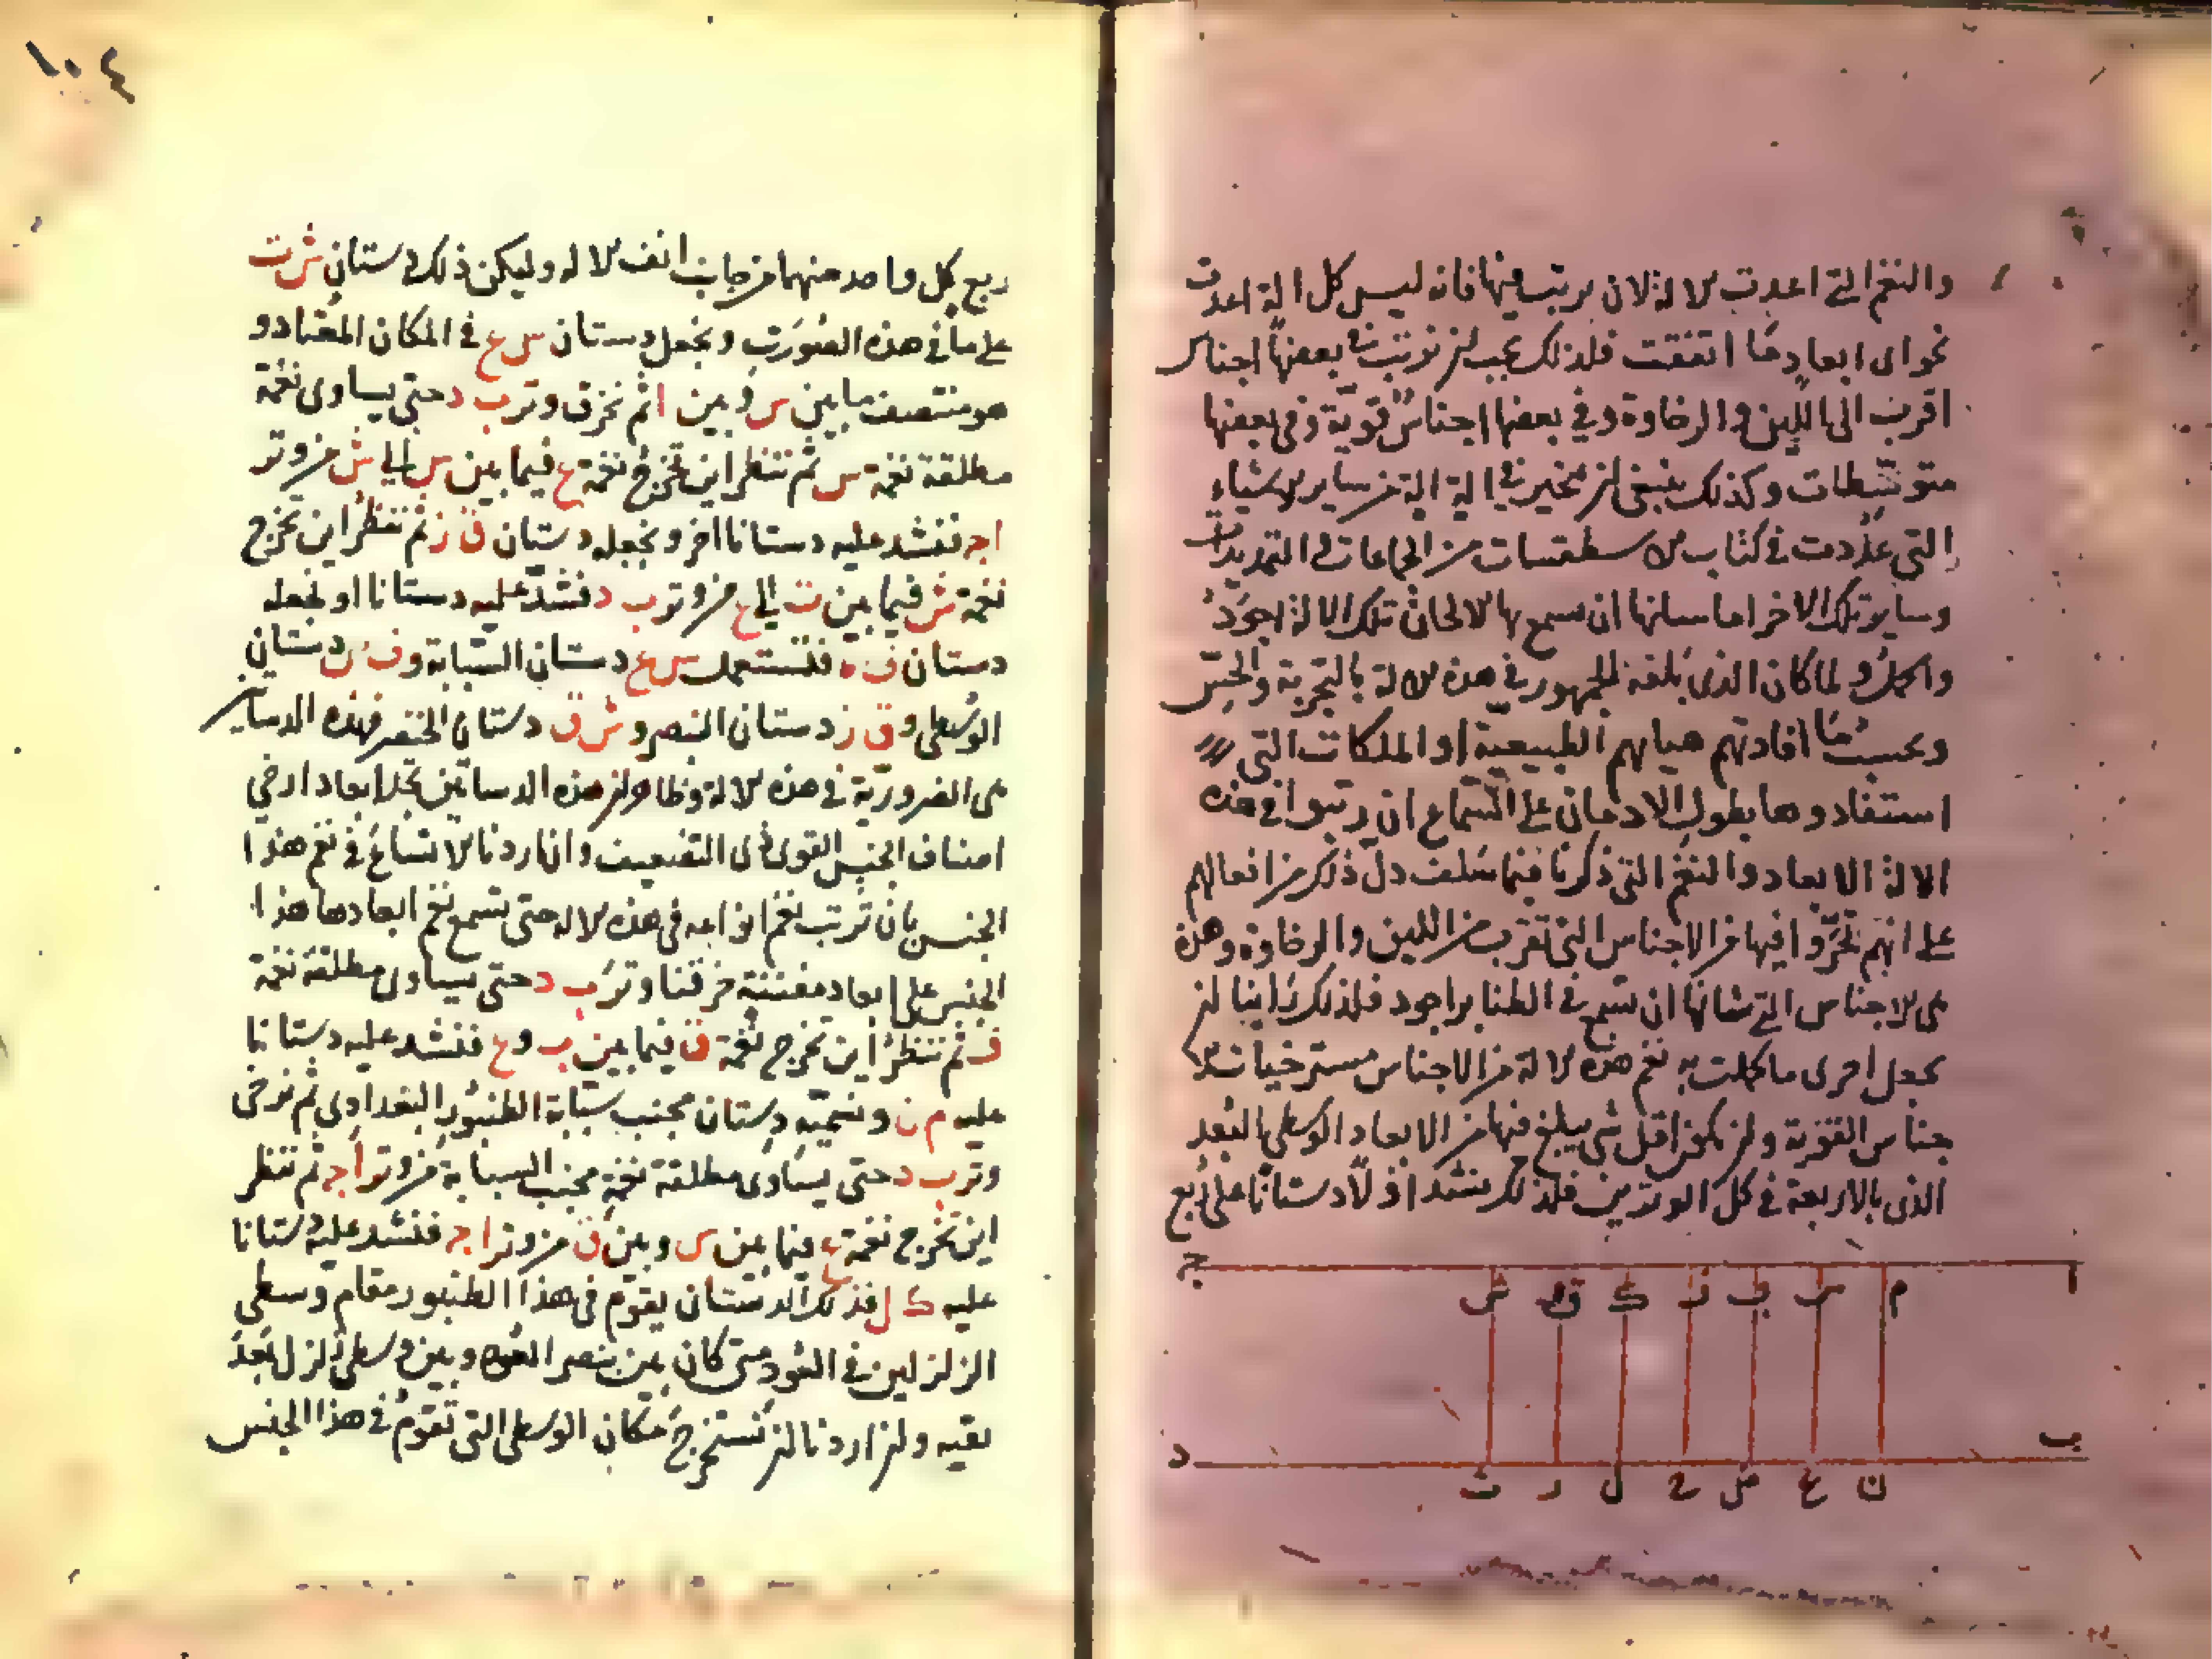 والنغم التي اعدت الالة لان يرتب فيها فانه ليس كل الة اعدت
نحو اى ابعاد ما اتفقت فلذلك يجب ان نرتب في بعضها اجناس
اقرب الى اللين والرخاوة وفي بعضها اجناس قوية وفى بعضها
متوسطات وكذلك ينبغى ان نخير في الة الة من ساير الاشياء
التي عددت في كتاب الاسطقسات من الجماعات و التمديدات
وساير تلك الاخر اما سانها ان نسمع بها الالحان تلك الالة اجود
واكمل ولما كان الذى يلقه الجمهور في هذه الالة بالتجربة والحس
وبحسب ما افادتهم هياتهم الطبيعية او الملكات التي
استفادوها بطول الادمان على السماع ان رتبوا في هذه
الالة الابعاد والنغم التي ذكرنا فيما سلف دل ذلك من افعالهم
على انهم تحروا فيها من الاجناس التى تقرب من اللين والرخاوة وهذه
هى الاجناس التي شانها ان تسمع في الطنابر اجود فلذلك راينا ان
نجعل احرى ما كملت به نغم هذه الالة من الاجناس مسترخيات الا
جناس القوية وان يكون اقل شى يبلغ فيها من الابعاد الوسطى البعد
الذى بالاربعة في كل الوترين فلذلك نشد اولا دستانا على ربع
ا م س ف ك ق ش ج
ب ن ع ص ح ل ر ت د
١٠٤
ربع كل واحد منهما من جانب انف الالة وليكن ذلك دستان ش ت
على ما في هذه الصورت ونجعل دستان س ع في المكان المعتاد و
هو منتصف ما بين س وبين ا ثم نخرق وتر ب د حتى يساوى نغمة
مطلقة نغمة س ثم ننظر اين تخرج نغمة ع فيما بين س الى ش من وتر
ا ج فنشد عليه دستانا اخر ونجعله دستان ق ر ثم ننظر اين تخرج
نغمة ش فيما بين ت الى ع من وتر ب د فنشد عليه دستانا او نجعله
دستان ف فنستعمل س ع دستان السبابة و ف دستان
الوسطى و ق ر دستان البنصر و ش ق دستان الخنصر فهذه الدساتين
هى الضرورية في هذه الالة وظاهر ان هذه الدساتين تحد ابعاد ارخي
اصناف الجنس القوى ذى التضعيف وان اردنا الاتساع في نغم هذا
الجنس بان نرتب نغم انواعه فى هذه الالة حتى تسمع نغم ابعادها هذا
الجنس على ابعاد مفتنة خرقنا وتر ب د حتى يساوى مطلقة نغمة
ف ثم ننظر اين تخرج نغمة ق فيما بين ب و ع فنشد عليه دستانا
عليه م ن ونسميه دستان مجنب سبابة الطنبور البغدادى ثم نرخى
وتر ب د حتى يساوى مطلقة نغمة مجنب السبابة من وتر ا ج ثم ننظر
اين تخرج نغمة ع فيما بين س وبين ق من وتر ا ج فنشد عليه دستانا
عليه ك ل فذلك الدستان يقوم فى هذا الطنبور مقام وسطى
الزلزلين في العود متى كان بين بنصر العود وبين وسطى زلزل بعد
بقيه وان اردنا ان نستخرج مكان الوسطى التى تقوم في هذا الجنس